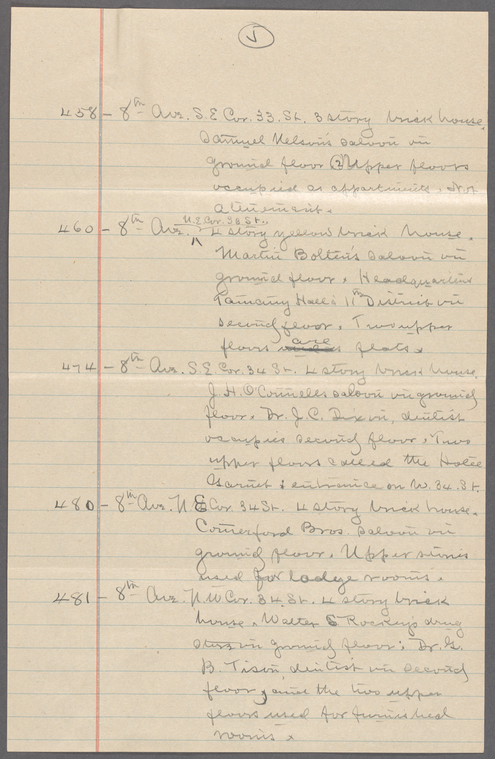 5
458 - 8th Ave. S.E Cor. 33. St. 3 story brick house.
Samuel Nelson's saloon on
ground floor (2) Upper floors
occupied as appartments. Not
a tenement.
N.E Cor. 33 St.
460 - 8th Ave. 4 story yellow brick house.
Martin Bolten's saloon on
ground floor. Headquarters
Tammany Hall: 11th District on
second floor. Two upper
floors are flats.
474 - 8th Ave. S.E Cor. 34 St. 4 story brick house.
J.H. O'Connells saloon on ground
floor. Dr. J.C. Dixon, dentist
occupies second floor. Two
upper floors called the Hotel
; entrance on W. 34 St.
480 - 8th Ave. N.E Cor. 34 St. 4 story brick house.
Comerford Bros. saloon on
ground floor. Upper
used for lodge rooms.
481 - 8th Ave. N.W Cor. 34 St. 4 story brick
house. Walter S drug
store on ground floor; Dr. G.
B. Tison, dentist on second
floor, and the two upper
floors used for furnished
rooms.